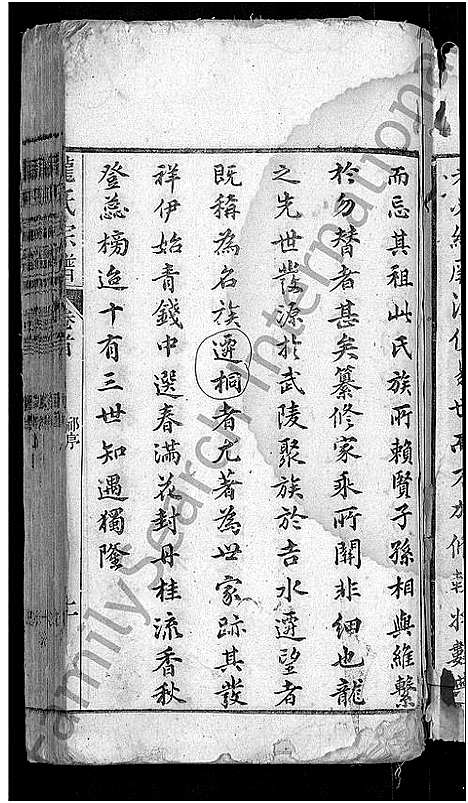 而忌其祖此氏族所賴賢子孫相與維繫
於勿替者甚矣纂修家乘所關非細也龍
之先世發源於武陵聚族於吉水遷望者
既稱為名族遷桐者尤著為世家跡其發
祥伊始青錢中選春滿花封丹桂流香秋
登蕊榜迨十有三世知遇獨隆
龍氏宗譜 卷首
FamilySearch International